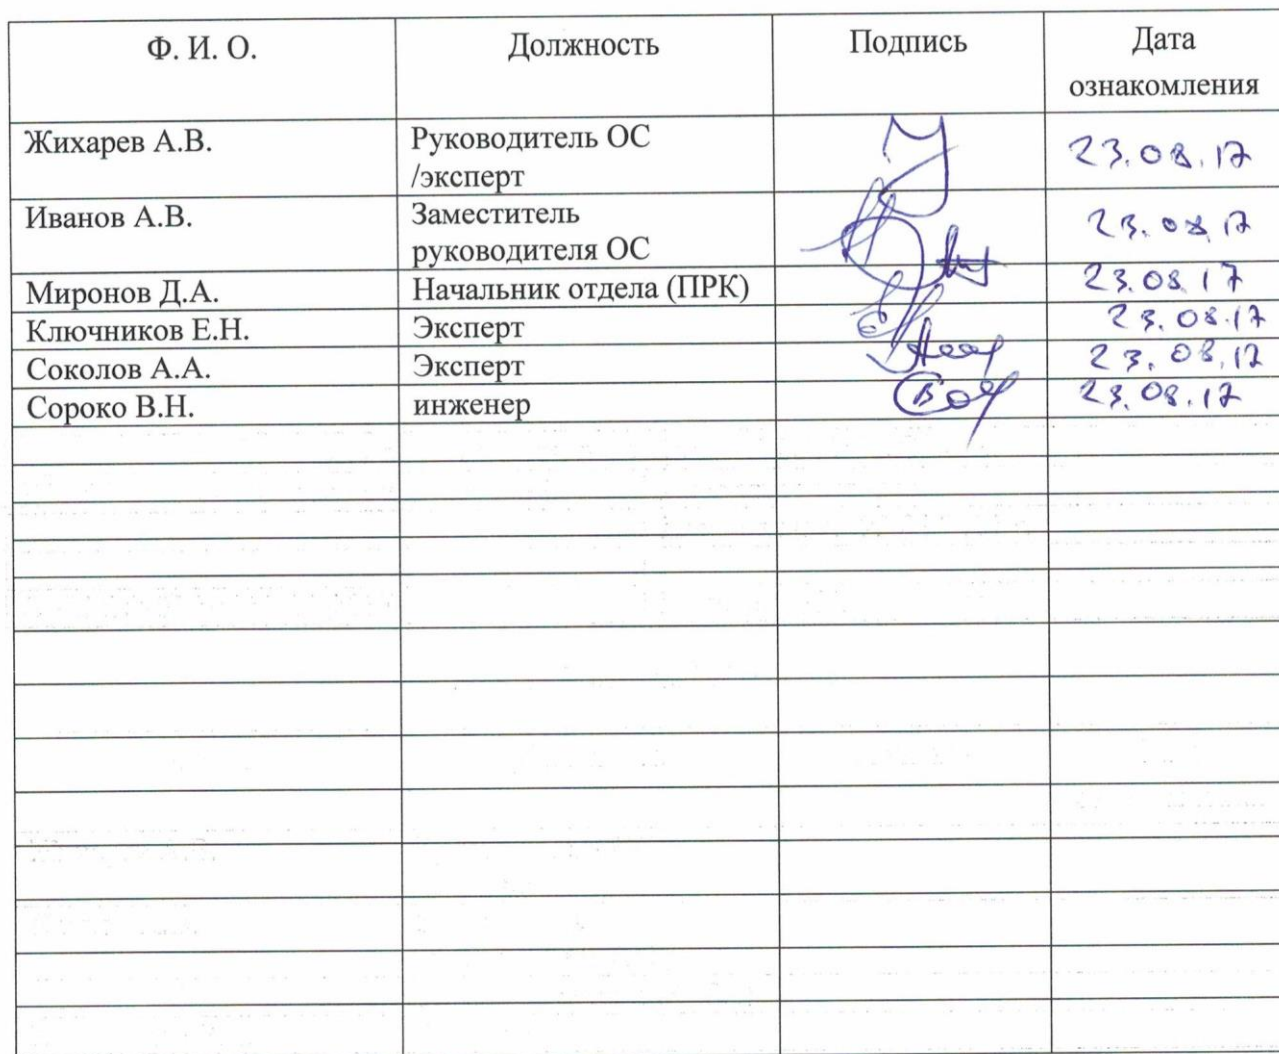 Ф. И. О. Должность Подпись Дата
ознакомления
Жихарев А.В. Руководитель ОС 23.08.17
/эксперт
Иванов А.В. Заместитель 23.08.17
руководителя ОС
Миронов Д.А. Начальник отдела (ПРК) 23.08.17
Ключников Е.Н. Эксперт 23.08.17
Соколов А.А. Эксперт 23.08.17
Сороко В.Н. инженер 23.08.17